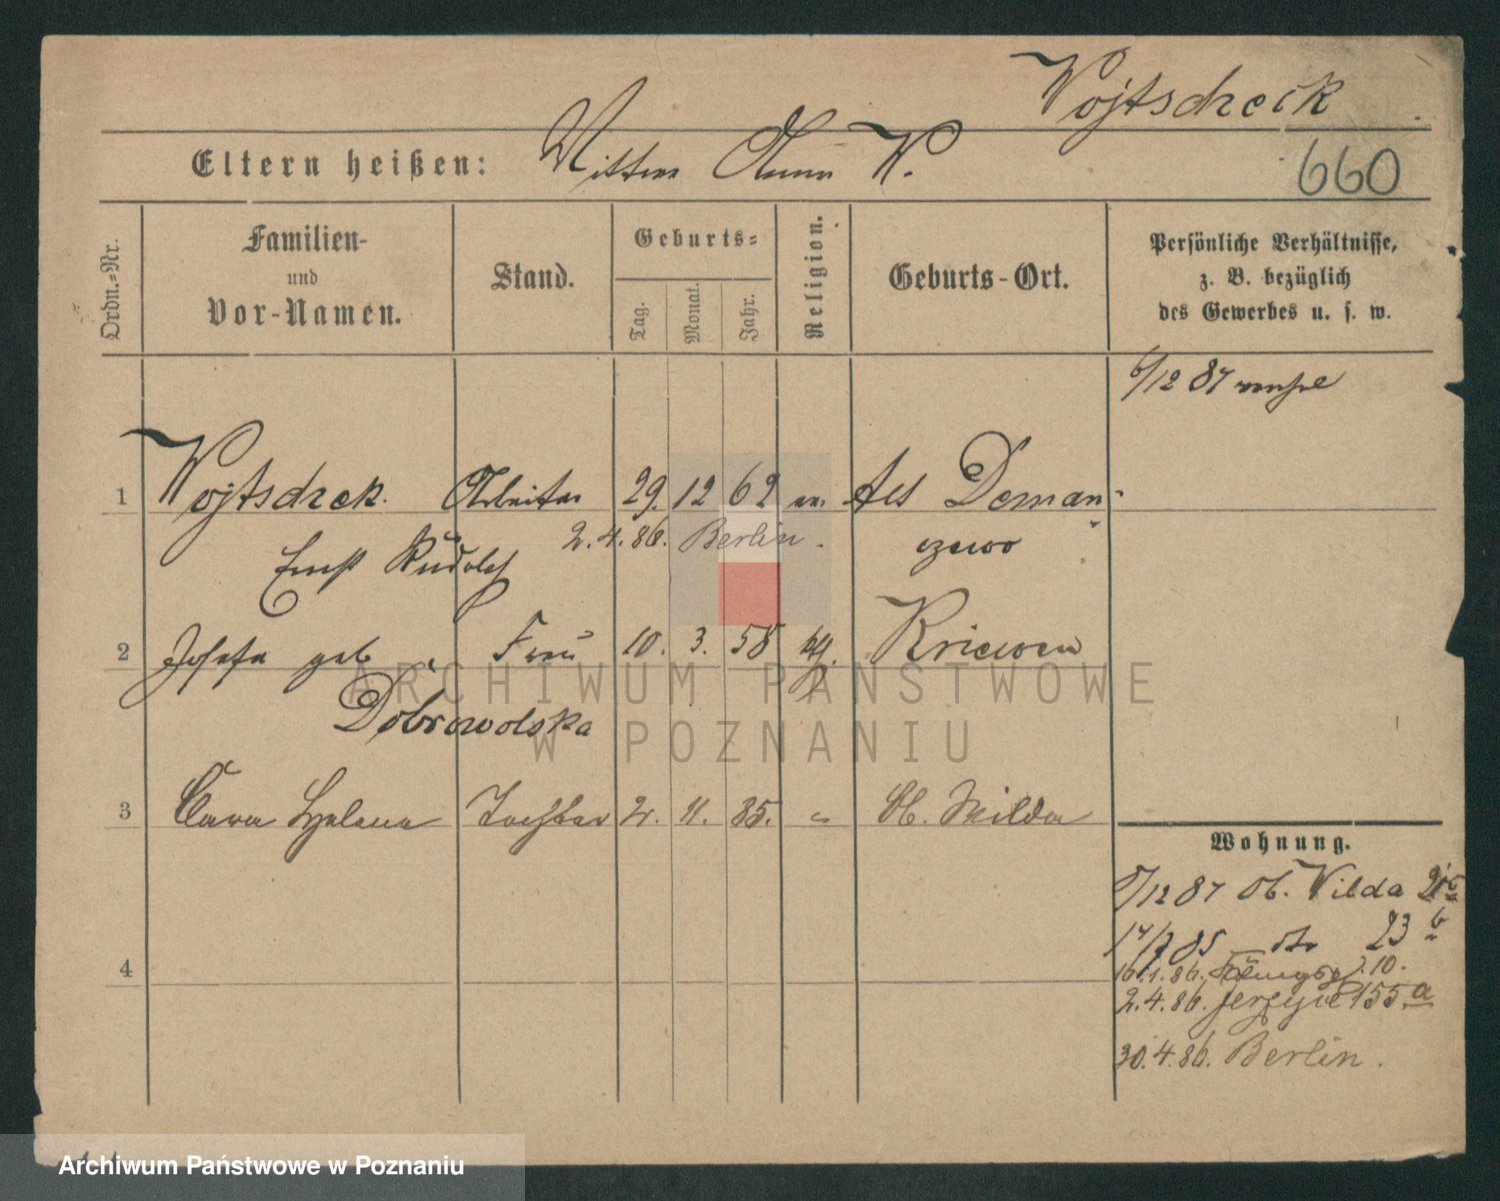 Wojtscheck
Eltern heißen: Mutter Anna W.
660
Ordn.-Nr.
Familien-
und
Vor-Namen.
Stand.
Geburts-
Tag.
Monat.
Jahr.
Religion.
Geburts-Ort.
Persönliche Verhältnisse,
z. B. bezüglich
des Gewerbes u. s. w.
6/12 87
1 Wojtscheck. Arbeiter 29. 12 62 ev. Alt Deman-
Ernst Rudolf 2.4.86. Berlin. czewo
2 Josefa geb. Frau 10. 3. 58 kth. Kriewen
Dobrowolska
3 Clara Helena Tochter 2. 11. 85. " Ob. Wilda
Wohnung.
/12 87 Ob. Wilda
85 dto 23 b
16.1.86. 10.
2.4.86. Jerzyce 155 a
30.4.86. Berlin.
4
ARCHIWUM PAŃSTWOWE
W POZNANIU
Archiwum Państwowe w Poznaniu